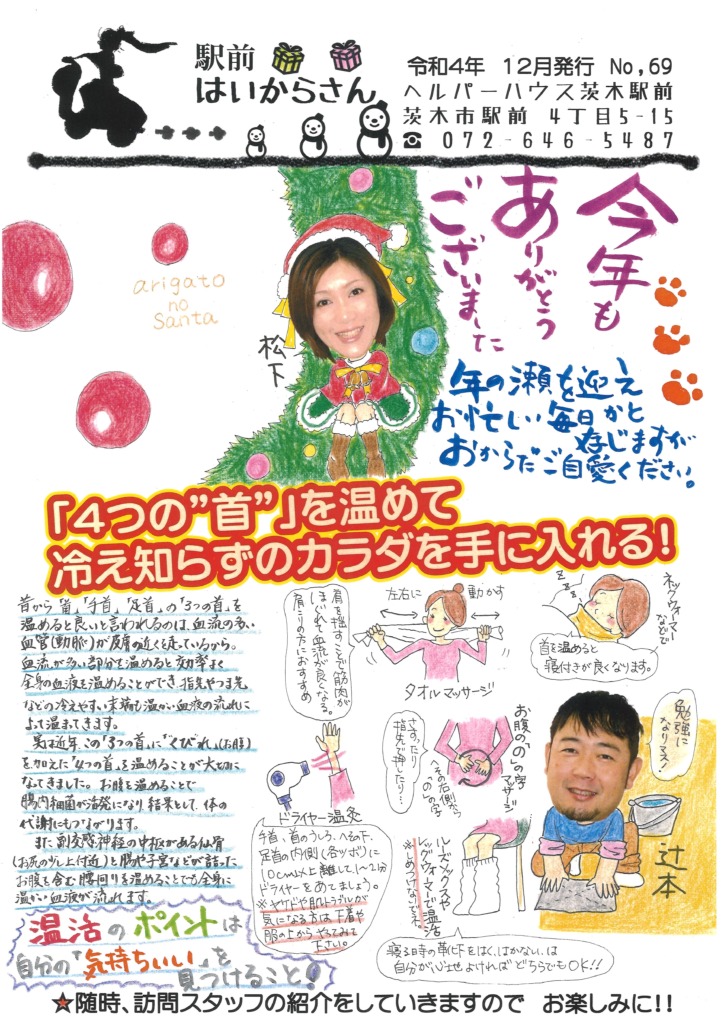 駅前
はいからさん
令和4年 12月発行 No,69
ヘルパーハウス茨木駅前
茨木市駅前 4丁目5-15
☎ 072-646-5487
今年も
ありがとう
ございました
arigato
no
Santa
松下
年の瀬を迎え
お忙しい毎日かと
存じますが
おからだご自愛ください。
「4つの”首”」を温めて
冷え知らずのカラダを手に入れる!
昔から「首」「手首」「足首」の「3つの首」を
温めると良いと言われるのは、血流の多い
血管(動脈)が皮膚の近くを走っているから。
血流が多い部分を温めると効率よく
全身の血液を温めることができ、指先やつま先
などの冷えやすい末端も温かい血液の流れに
よって温まってきます。
実は近年、この「3つの首」に「くびれ」(お腹)
を加えた「4つの首」を温めることが大切に
なってきました。お腹を温めることで
腸内細菌が活発になり、結果として、体の
代謝にもつながります。
また、副交感神経の中枢がある仙骨
(お尻の少し上付近)と腸や子宮などが詰った
お腹を含む腰回りを温めることでも全身に
温かい血液が流れます。
温活のポイントは
自分の「気持ちいい」を
見つけること!
肩を揺すことで筋肉が
ほぐれて血流が良くなる。
肩こりの方におすすめ
左右に 動かす
タオルマッサージ
ネックウォーマー
などで
首を温めると
寝付きが良くなります。
ドライヤー温灸
手首、首のうしろ、へその下、
足首の内側(各ツボ)に
10cm以上離して、1〜2分
ドライヤーをあてましょう。
※ヤケドや肌トラブルが
気になる方は、下着や
服の上からやってみて
下さい。
お腹の「の」の字
マッサージ
へその右側から
「の」の字
さすったり
指先で押したり…
ルーズソックスや
レッグウォーマーで温活
※しめつけないでネ。
寝る時の靴下をはく、はかない、は
自分が心地よければどちらでもOK!!
勉強に
なりマス!
辻本
★随時、訪問スタッフの紹介をしていきますので お楽しみに!!